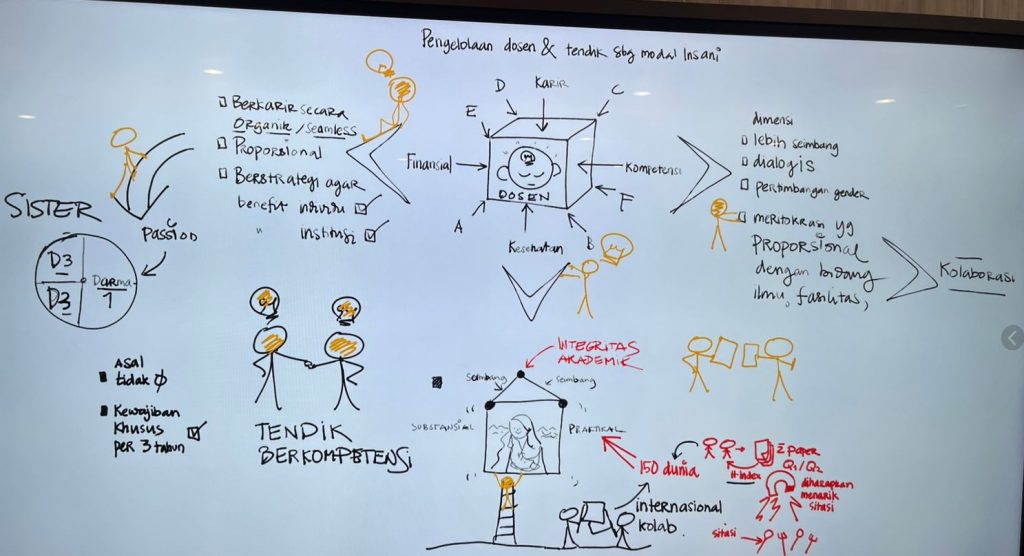 Pengelolaan dosen & tendik sbg modal Insani
Berkarir secara
Organik / seamless
Proporsional
Berstrategi agar
benefit individu
" institusi
D
Karir
C
E
Finansial
Kompetensi
DOSEN
F
A
Kesehatan
B
dimensi
lebih seimbang
dialogis
pertimbangan gender
meritokrasi yg
Proporsional
dengan bidang
ilmu, fasilitas,
Kolaborasi
SISTER
Passion
D3
D3
Darma
1
Asal
tidak Ø
Kewajiban
khusus
per 3 tahun
TENDIK
BERKOMPETENSI
INTEGRITAS
AKADEMIK
Seimbang
Seimbang
SUBSTANSIAL
PRAKTIKAL
150 dunia
internasional
kolab.
H-index
Σ paper
Q1/Q2
diharapkan
menarik
sitasi
sitasi